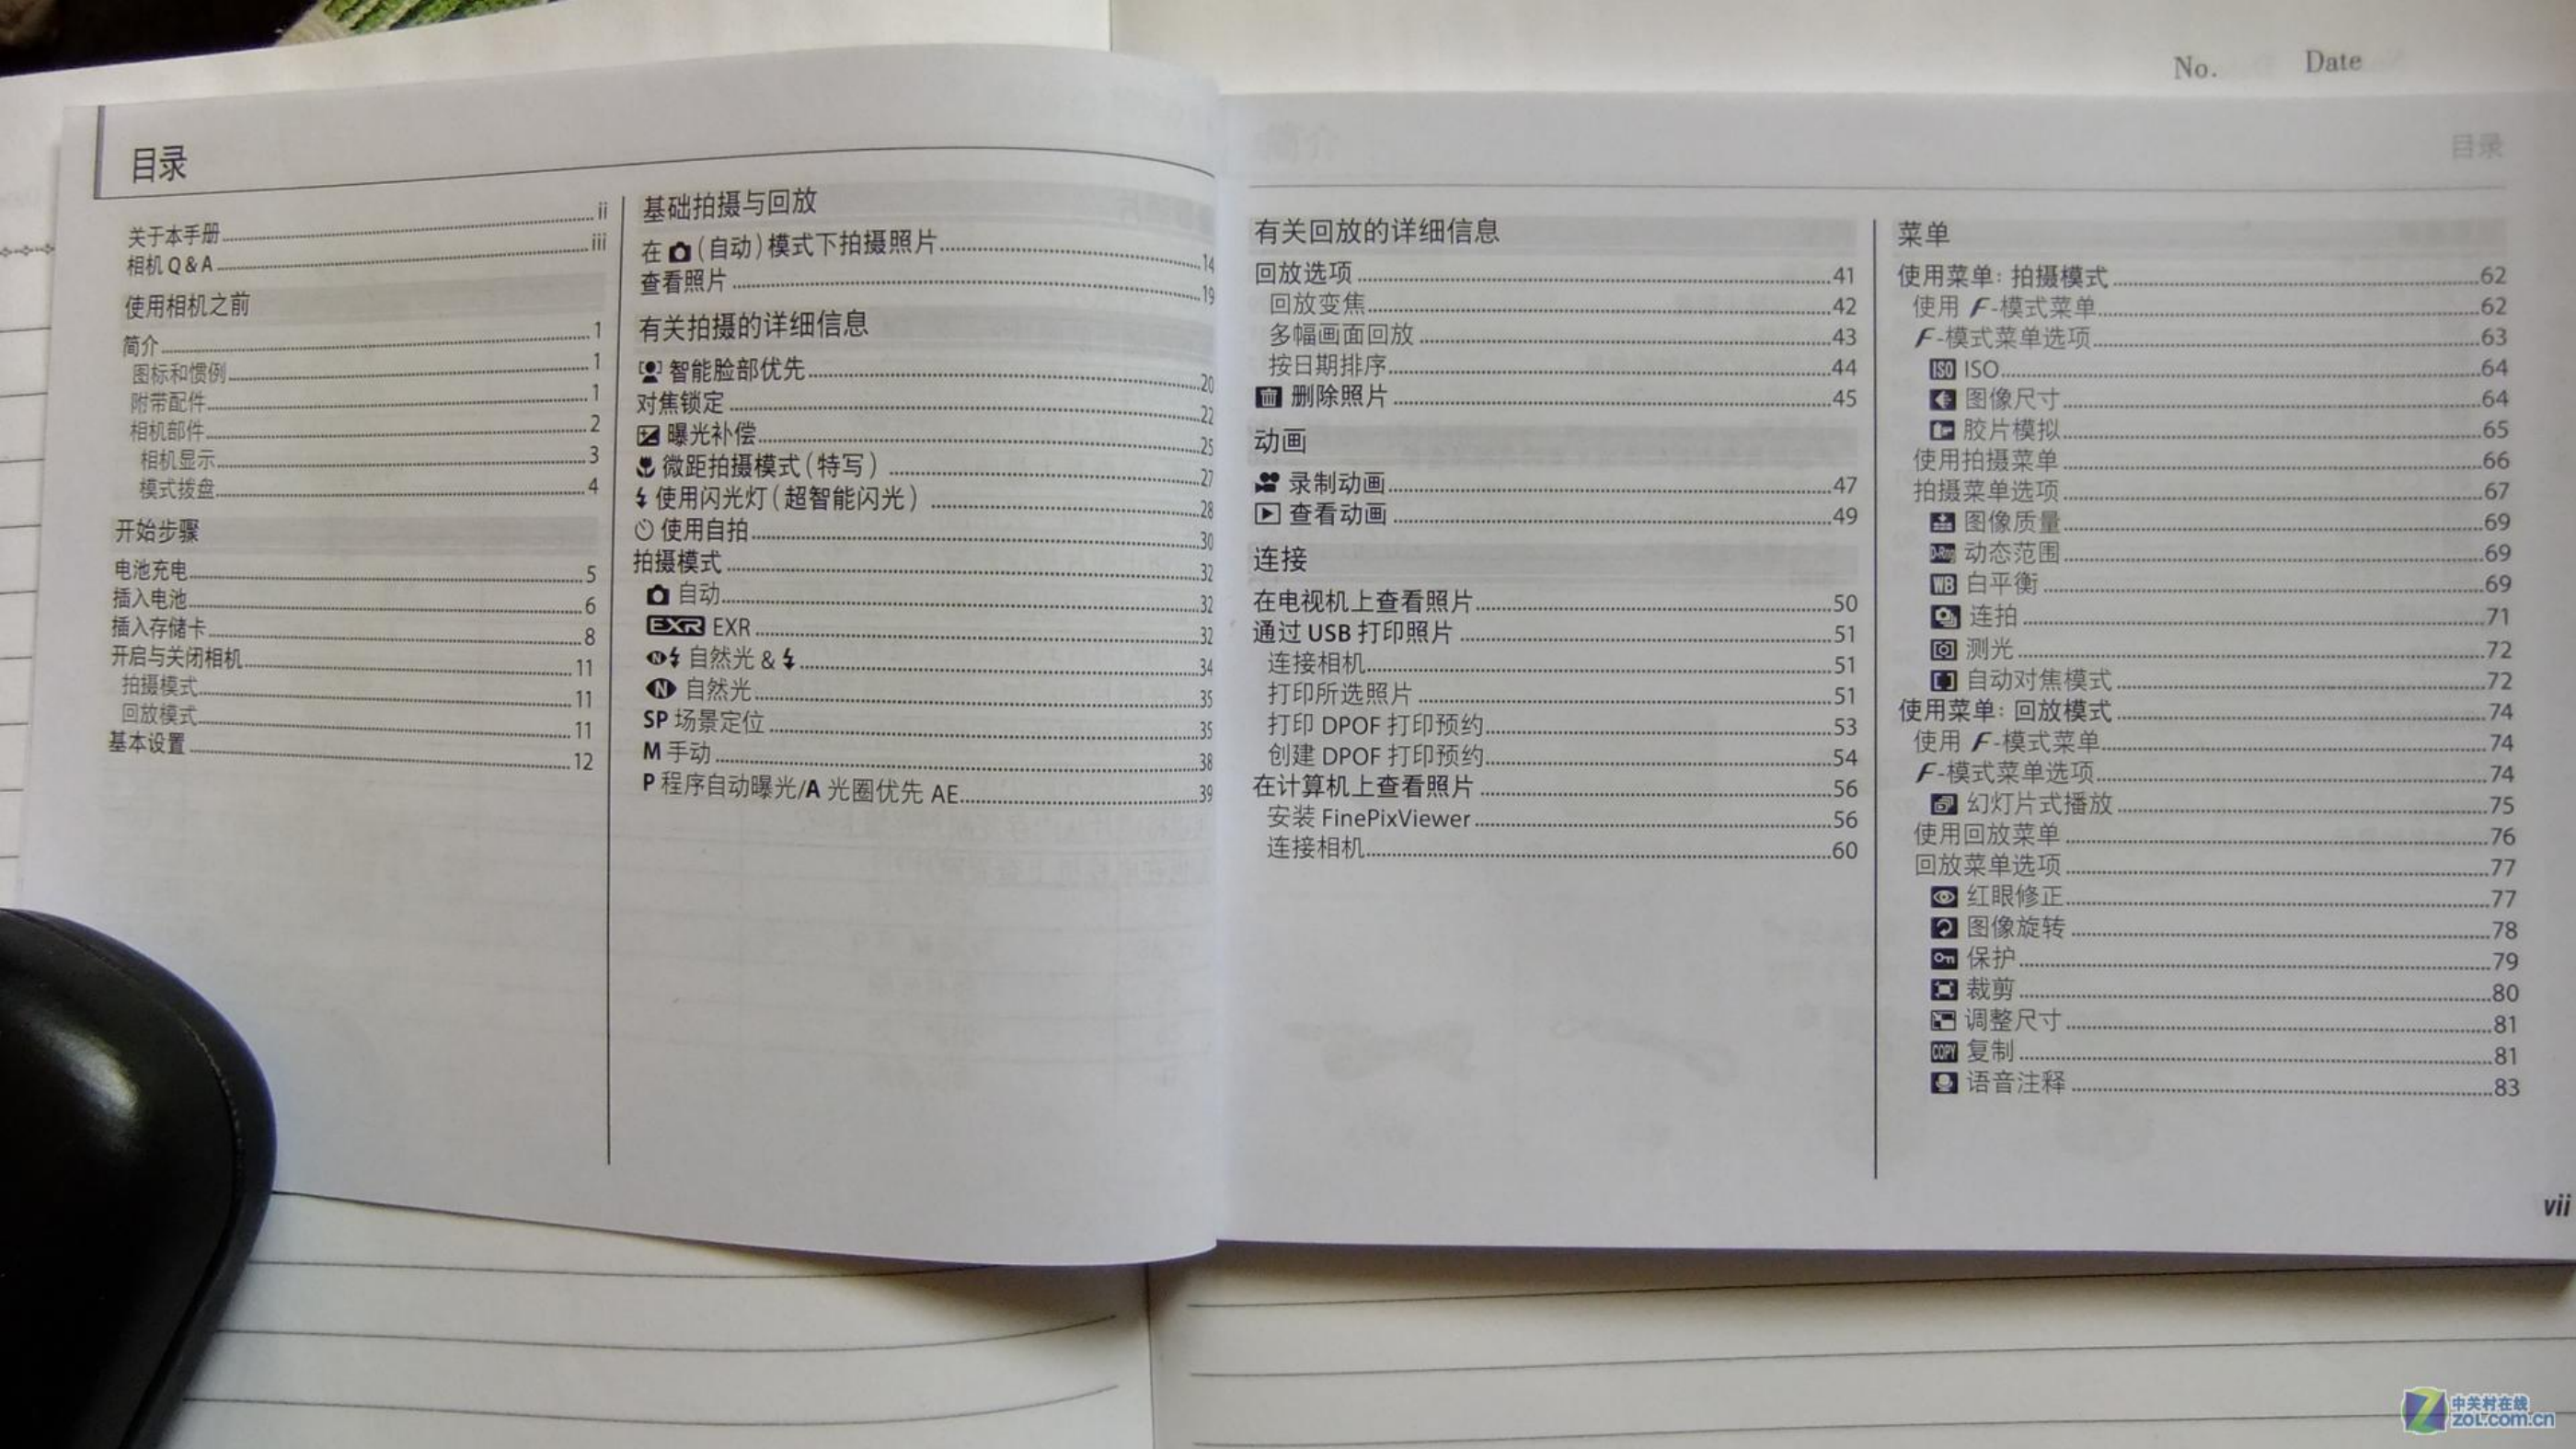 No. Date
目录
关于本手册 ii
相机 Q & A iii
使用相机之前
简介 1
图标和惯例 1
附带配件 1
相机部件 2
相机显示 3
模式拨盘 4
开始步骤
电池充电 5
插入电池 6
插入存储卡 8
开启与关闭相机 11
拍摄模式 11
回放模式 11
基本设置 12
基础拍摄与回放
在 (自动) 模式下拍摄照片 14
查看照片 19
有关拍摄的详细信息
智能脸部优先 20
对焦锁定 22
曝光补偿 25
微距拍摄模式 (特写) 27
使用闪光灯 (超智能闪光) 28
使用自拍 30
拍摄模式 32
自动 32
EXR EXR 32
自然光 & 34
自然光 35
SP 场景定位 35
M 手动 38
P 程序自动曝光/A 光圈优先 AE 39
目录
有关回放的详细信息
回放选项 41
回放变焦 42
多幅画面回放 43
按日期排序 44
删除照片 45
动画
录制动画 47
查看动画 49
连接
在电视机上查看照片 50
通过 USB 打印照片 51
连接相机 51
打印所选照片 51
打印 DPOF 打印预约 53
创建 DPOF 打印预约 54
在计算机上查看照片 56
安装 FinePixViewer 56
连接相机 60
菜单
使用菜单: 拍摄模式 62
使用 F-模式菜单 62
F-模式菜单选项 63
ISO ISO 64
图像尺寸 64
胶片模拟 65
使用拍摄菜单 66
拍摄菜单选项 67
图像质量 69
动态范围 69
WB 白平衡 69
连拍 71
测光 72
自动对焦模式 72
使用菜单: 回放模式 74
使用 F-模式菜单 74
F-模式菜单选项 74
幻灯片式播放 75
使用回放菜单 76
回放菜单选项 77
红眼修正 77
图像旋转 78
保护 79
裁剪 80
调整尺寸 81
COPY 复制 81
语音注释 83
vii
中关村在线
zol.com.cn